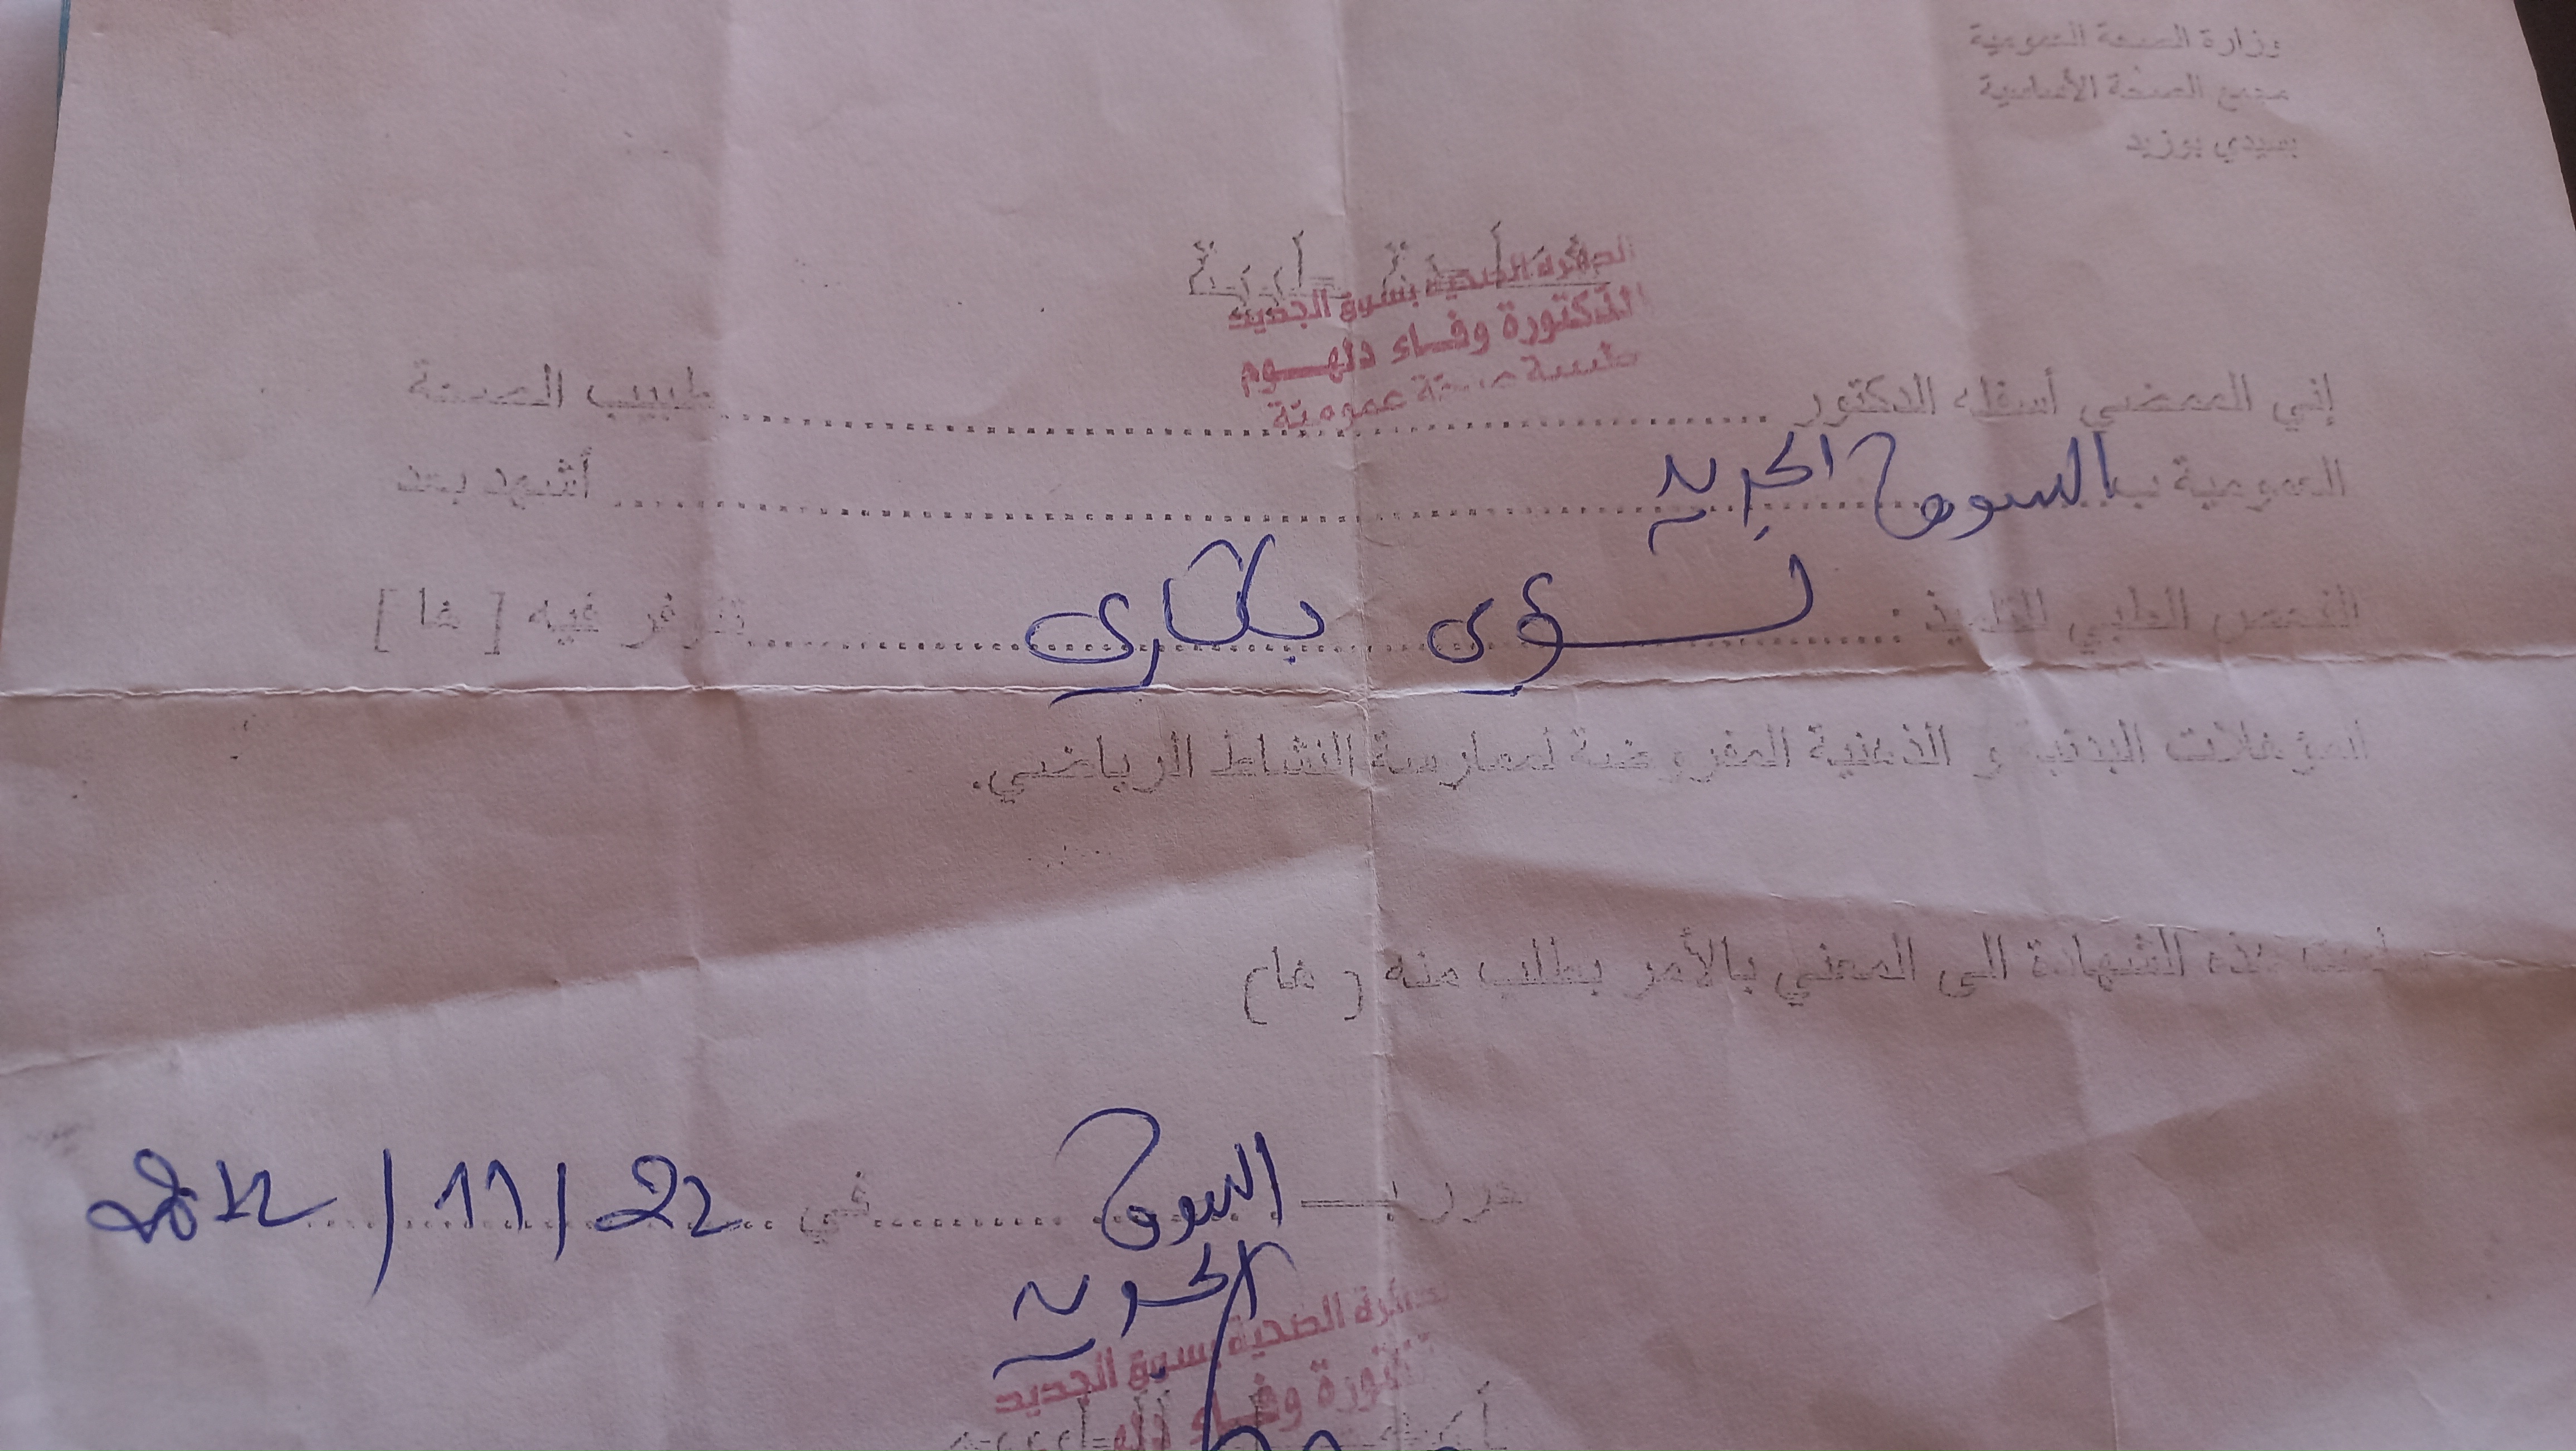 وزارة الصحة العمومية
مجمع الصحة الأساسية
بسيدي بوزيد
شهادة طبية
الدائرة الصحية بسوق الجديد
الدكتورة وفاء دلهوم
طبيبة صحة عمومية
إني الممضي أسفله الدكتور .......... طبيب الصحة
العمومية ب السوق الجديد .......... أشهد بعد
الفحص الطبي للتلميذ : .......... تتوفر فيه [ ها ]
المؤهلات البدنية و الذهنية المفروضة لممارسة النشاط الرياضي.
سلمت هذه الشهادة الى المعني بالأمر بطلب منه ( ها )
حرر بـ السوق الجديد في 22 / 11 /
الدائرة الصحية بسوق الجديد
الدكتورة وفاء